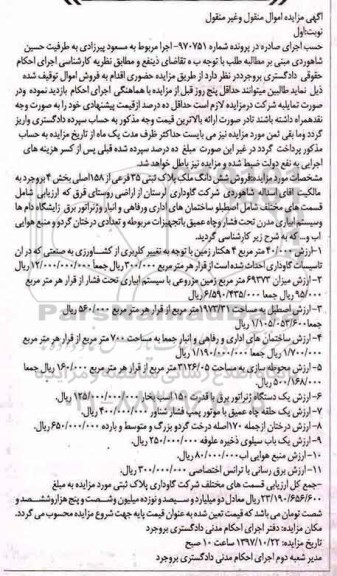 آگهی مزایده اموال منقول وغیر منقول
نوبت:اول
حسب اجرای صادره در پرونده شماره ۹۷۰۷۵۱- اجرا مربوط به مسعود پیرزادی به طرفیت حسین
شاهوردی مبنی بر مطالبه طلب با توجب ه تقاضای ذینفع و مطابق نظریه کارشناسی اجرای احکام
حقوقی دادگستری بروجرددر نظر دارد از طریق مزایده حضوری اقدام به فروش اموال توقیف شده
ذیل نماید.طالبین میتوانند حداقل پنج روز قبل از مزایده با هماهنگی اجرای احکام بازدید نموده ودر
صورت تمایلبه شرکت درمزایده لازم است حداقل ده درصد ازقیمت پیشنهادی خود را به صورت وجه
نقدهمراه داشته باشند تادر صورت ارائه بالاترین قیمت وجه مذکور به حساب سپرده دادگستری واریز
گردد وما بقی ثمن مورد مزایده نیز می بایست حداکثر ظرف مدت یک ماه از تاریخ مزایده به حساب
مذکور پرداخت گردد در غیر این صورت مبلغ ده درصد سپرده شده قبلی پس از کسر هزینه های
اجرایی به نفع دولت ضبط شده و مزایده نیز باطل خواهد شد.
مشخصات مورد مزایده:فروش شش دانگ ملک پلاک ثبتی ۳۵ فرعی از ۱۵۸اصلی بخش ۴ بروجرد به
مالکیت اقای اسداله شاهوردی شرکت گاوداری لرستان از اراضی روستای قرق که ارزیابی شامل
قسمت های مختلف شامل اصطبلو ساختمان های اداری ورفاهی و انبار وژنراتور برق زایشگاه دام ها
وسیستم ابیاری مدرن تحت فشار وچاه عمیق باتجهیزات مربوطه و تعدادی درختان گردو و منبع هوایی
اب و... که به شرح زیر کارشناسی گردید.
۱-ارزش ۴۰/۰۰۰ متر مربع ۴ هکتار زمین با توجه به تغییر کاربری از کشاورزی به صنعتی که در ان
تاسیسات گاوداری احداث شده است از قرار هر متر مربع ۳۰۰/۰۰۰ ریال جمعا ۱۲/۰۰۰/۰۰۰/۰۰۰ ریال
۲-ارزش میزان ۶۹۳۷۳ متر مربع زمین مزروعی با سیستم ابیاری تحت فشار از قرار هر متر مربع
۹۵/۰۰۰ ریال جمعا ۶/۵۹۰/۴۳۵/۰۰۰ ریال.
۳-ارزش اصطبل به مساحت ۱۹۷۳/۳۱متر مربع از قرار هر متر مربع ۵۶۰/۰۰۰ ریال
جمعا ۱/۱۰۵/۰۵۳/۶۰۰ ریال
۴-ارزش ساختمان های اداری و رفاهی و انبار جمعا به مساحت ۷۰۰ متر مربع از قرار هر متر مربع
۱/۷۰۰/۰۰۰ ریال جمعا ۱/۱۹۰/۰۰۰/۰۰۰ ریال
۵-ارزش محوطه سازی به مساحت ۳۱۲۶/۰۵ متر مربع از قرار هر متر مربع ۱۶۰/۰۰۰ ریال جمعا
۵۰۰/۱۶۸/۰۰۰ ریال.
۶-ارزش یک دستگاه ژنراتور برق با قدرت ۱۵۰ اسب بخار ۱۲۵/۰۰۰/۰۰۰ ریال.
۷-ارزش یک حلقه چاه عمیق با موتور پمپ فشار شناور ۴۰۰/۰۰۰/۰۰۰ ریال.
۸-ارزش درختان ازجمله ۱۷۰اصله درخت گردو بزرگ و متوسط و بارده ۶۵۰/۰۰۰/۰۰۰ ریال.
۹-ارزش یک باب سیلوی ذخیره علوفه ۲۵۰/۰۰۰/۰۰۰ ریال.
۱۰-ارزش منبع هوایی اب۸۰/۰۰۰/۰۰۰ریال
۱۱-ارزش برق رسانی با ترانس اختصاصی ۳۰۰/۰۰۰/۰۰۰ ریال.
-جمع کل ارزیابی قسمت های مختلف شرکت گاوداری پلاک ثبتی مورد مزایده به مبلغ
۲۳/۱۹۰/۶۵۶/۶۰۰ ریال معادل دو میلیارد و سیصد و نوزده میلیون وشصت و پنج هزاروششصد و
شصت تومان می باشد که قیمت تعین شده به عنوان قیمت پایه جهت شروع مزایده محسوب می گردد.
مکان مزایده: دفتر اجرای احکام مدنی دادگستری بروجرد
تاریخ مزایده: ۱۳۹۷/۱۰/۲۲ ساعت ۱۰ صبح
مدیر شعبه دوم اجرای احکام مدنی دادگستری بروجرد